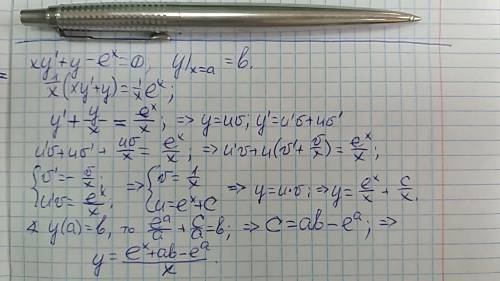 xy'+y-eˣ=0, y|ₓ₌ₐ=b.
1/x(xy'+y)=1/x eˣ;
y'+y/x=eˣ/x; ⇒ y=uv; y'=u'v+uv'
u'v+uv'+uv/x=eˣ/x; ⇒ u'v+u(v'+v/x)=eˣ/x;
{v'=-v/x; u'v=eˣ/x; ⇒ {v=1/x u=eˣ+C ⇒ y=u·v; ⇒ y=eˣ/x+C/x.
∡ y(a)=b, то eᵃ/a+C/a=b; ⇒ C=ab-eᵃ; ⇒
y=(eˣ+ab-eᵃ)/x.